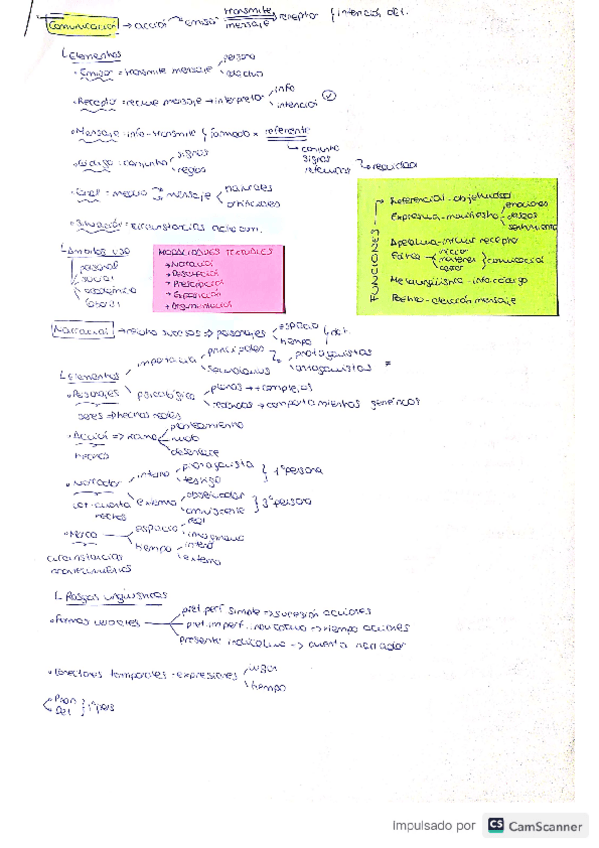 Comunicació → acció emisor transmite mensaje receptor intenció det.
Elementos
• Emisor = transmite mensaje persona
colectivo
• Receptor = recibe mensaje → interpretar info
intenció
• Mensaje = info transmite formado x referente
conjunto
signos
• Código = conjunto signos
reglas
realidad
• Canal = medio mensaje naturales
artificiales
• Situación = circunstancias
Ámbitos uso
personal
social
académico
MODALIDADES TEXTUALES
→ Narració
→ Descripció
→ Prescripció
→ Exposició
→ Argumentació
FUNCIONES
Referencial - objetividad
Expresiva - manifiesta emociones
deseos
sentimiento
Apelativa - influir receptor
Fática iniciar
mantener
cortar
comunicació
Metalingüística - info código
Poética - elecció mensaje
Narració → relato sucesos → personajes espacio
tiempo
det.
Elementos
• Personajes importancia principales
secundarios
protagonistas
antagonistas
psicológica planos → + complejos
redondos → comportamientos genéricos
seres → hechos reales
• Acció => trama planteamiento
nudo
desenlace
hechos
• Narrador interno protagonista
testigo
1ª persona
externo observador
omnisciente
3ª persona
cuenta
hechos
• Marco espacio real
imaginario
tiempo interno
externo
circunstancias
Rasgos lingüísticos
• Formas verbales pret. perf. simple → sucesión acciones
pret. imperf. → tiempo acciones
presente indicativo → cuenta narrador
• Conectores temporales - expresiones lugar
tiempo
Pron
Det
1ª pers
Impulsado por CS CamScanner